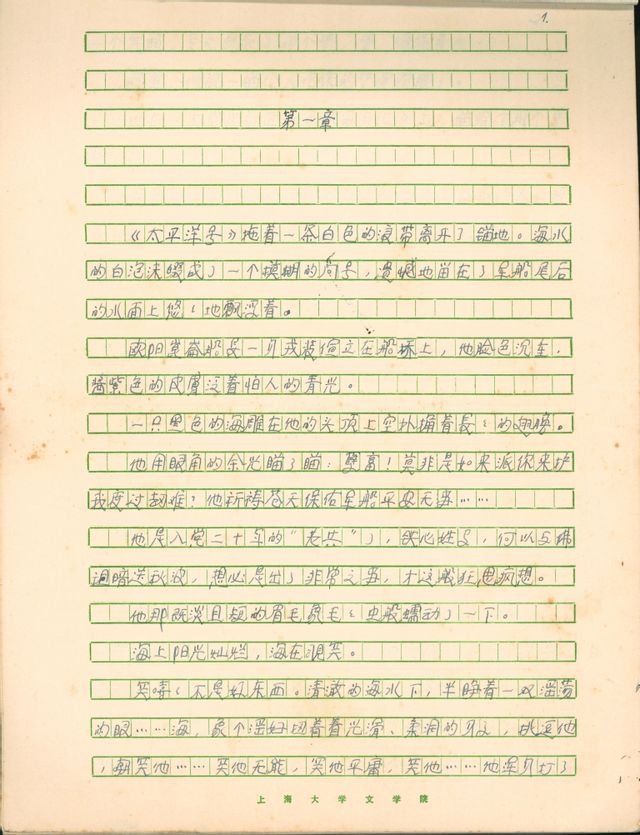 1.
第一章
《太平洋号》拖着一条白色的浪带离开了锚地。海水
的白泡沫缀成了一个模糊的问号，遗憾地留在了军船尾后
的水面上悠悠地飘浮着。
欧阳昆崙船长一身戎装伫立在船桥上，他脸色沉重，
酱紫色的皮膚泛着怕人的青光。
一只黑色的海雕在他的头顶上空扑揙着長長的翅膀。
他用眼角的余光瞄了瞄：孽畜！莫非是如来派你来护
我度过劫难？他祈祷苍天保佑军船平安无事……
他是入党二十年的“老共”了，铁心姓马，何以与佛
迴暗送秋波，想必是出了非常之事，才这般狂思疯想。
他那既淡且短的眉毛象毛毛虫般蠕动了一下。
海上阳光灿烂，海在浪笑。
笑嘻嘻不是好东西。清澈的海水下，半睁着一双淫荡
的眼……海，象个淫妇扭着着光滑、柔润的身子，挑逗他
，朝笑他……笑他无能，笑他平庸，笑他……他浑身打了
上海大学文学院